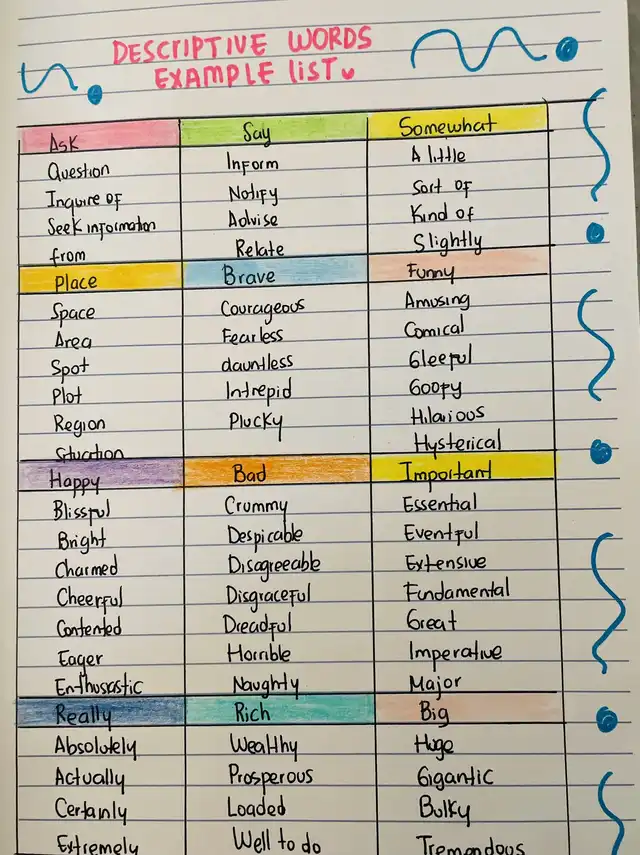 DESCRIPTIVE WORDS
EXAMPLE LIST
Ask
Question
Inquire of
Seek information
from
Say
Inform
Notify
Advise
Relate
Somewhat
A little
Sort of
Kind of
Slightly
Place
Space
Area
Spot
Plot
Region
Situation
Brave
Courageous
Fearless
dauntless
Intrepid
Plucky
Funny
Amusing
Comical
Gleeful
Goofy
Hilarious
Hysterical
Happy
Blissful
Bright
Charmed
Cheerful
Contented
Eager
Enthusastic
Bad
Crummy
Despicable
Disagreeable
Disgraceful
Dreadful
Horrible
Naughty
Important
Essential
Eventful
Extensive
Fundamental
Great
Imperative
Major
Really
Absolutely
Actually
Certainly
Extremely
Rich
Wealthy
Prosperous
Loaded
Well to do
Big
Huge
Gigantic
Bulky
Tremendous